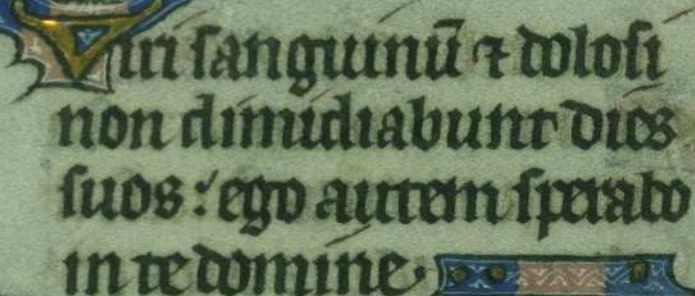 Viri sanguinū ⁊ dolosi
non dimidiabunt dies
suos: ego autem sperabo
in te domine.